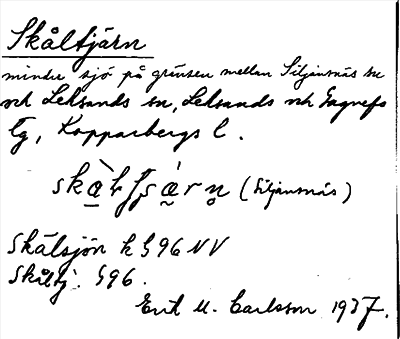 Skåltjärn
mindre sjö på gränsen mellan Siljansnäs sn
och Leksands sn, Leksands och Gagnefs
tg, Kopparbergs l.
(Siljansnäs)
Skålsjön k G96 NV
Skåltj. G96.
Erik M. Carlsson 1937.